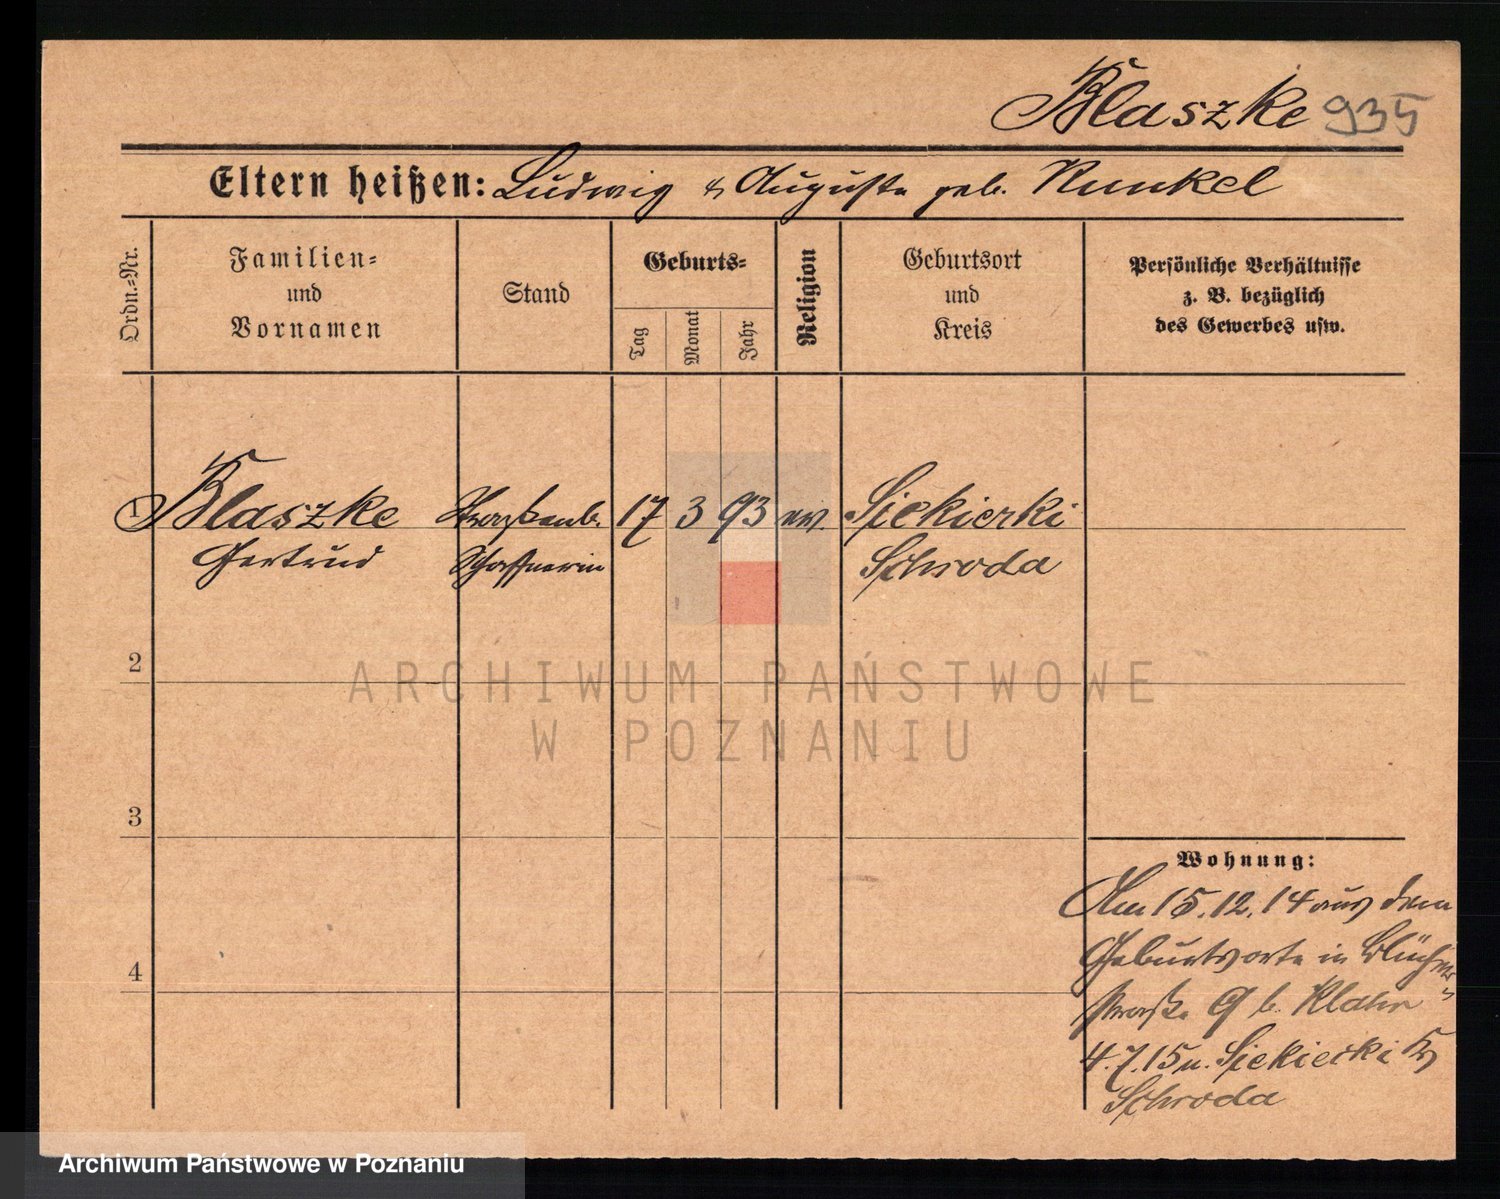 Blaszke 935
Eltern heißen: Ludwig & Auguste geb. Kunkel
Ordn.-Nr.
Familien-
und
Vornamen
Stand
Geburts-
Tag
Monat
Jahr
Religion
Geburtsort
und
Kreis
Persönliche Verhältnisse
z. B. bezüglich
des Gewerbes usw.
1 Blaszke Straßenb. 17 3 93 ev. Siekierki
Gertrud Schaffnerin Schroda
2
ARCHIWUM PAŃSTWOWE
W POZNANIU
3
Wohnung:
Am 15.12.14 aus dem
4
Geburtsorte in Blücher-
straße 9 b. Klahr
4.7.15 n. Siekierki Kr
Schroda
Archiwum Państwowe w Poznaniu